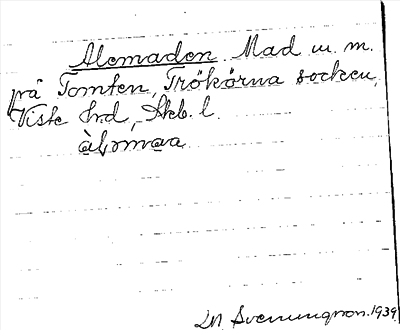 Alemaden Mad m. m.
på Tomten, Trökörna socken,
Viste hrd, Skb. l.
àlͻmaa
LN Svenungsson. 1939.